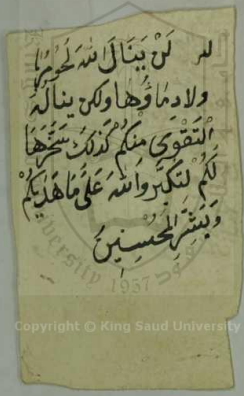 لله لَنْ يَنَالَ اللهَ لُحُومُهَا
وَلَا دِمَاؤُهَا وَلَكِنْ يَنَالُهُ
التَّقْوَى مِنْكُمْ كَذَلِكَ سَخَّرَهَا
لَكُمْ لِتُكَبِّرُوا اللهَ عَلَى مَا هَدَيكُمْ
وَبَشِّرِ الْمُحْسِنِينَ
1957
Copyright © King Saud University